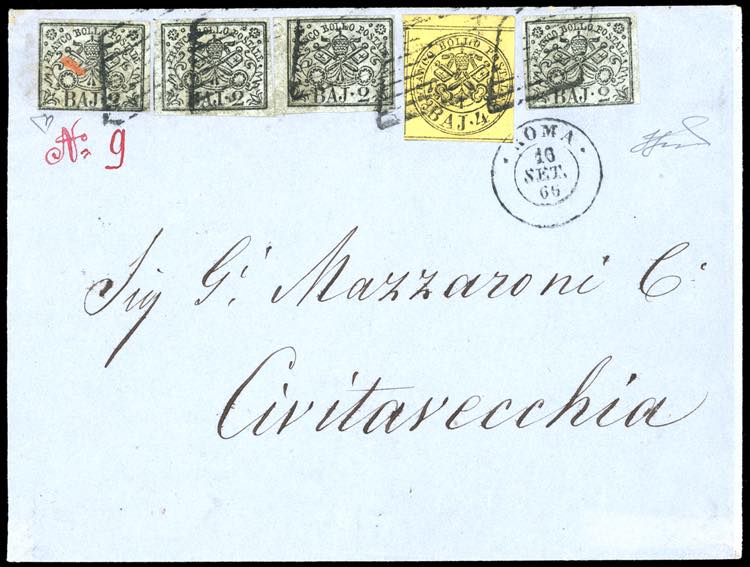 FRANCO BOLLO POSTALE BAJ. 2
FRANCO BOLLO POSTALE BAJ. 2
FRANCO BOLLO POSTALE BAJ. 2
FRANCO BOLLO POSTALE BAJ. 4
FRANCO BOLLO POSTALE BAJ. 2
No 9
ROMA
16
SET.
66
Sig Gi Mazzaroni C.
Civitavecchia